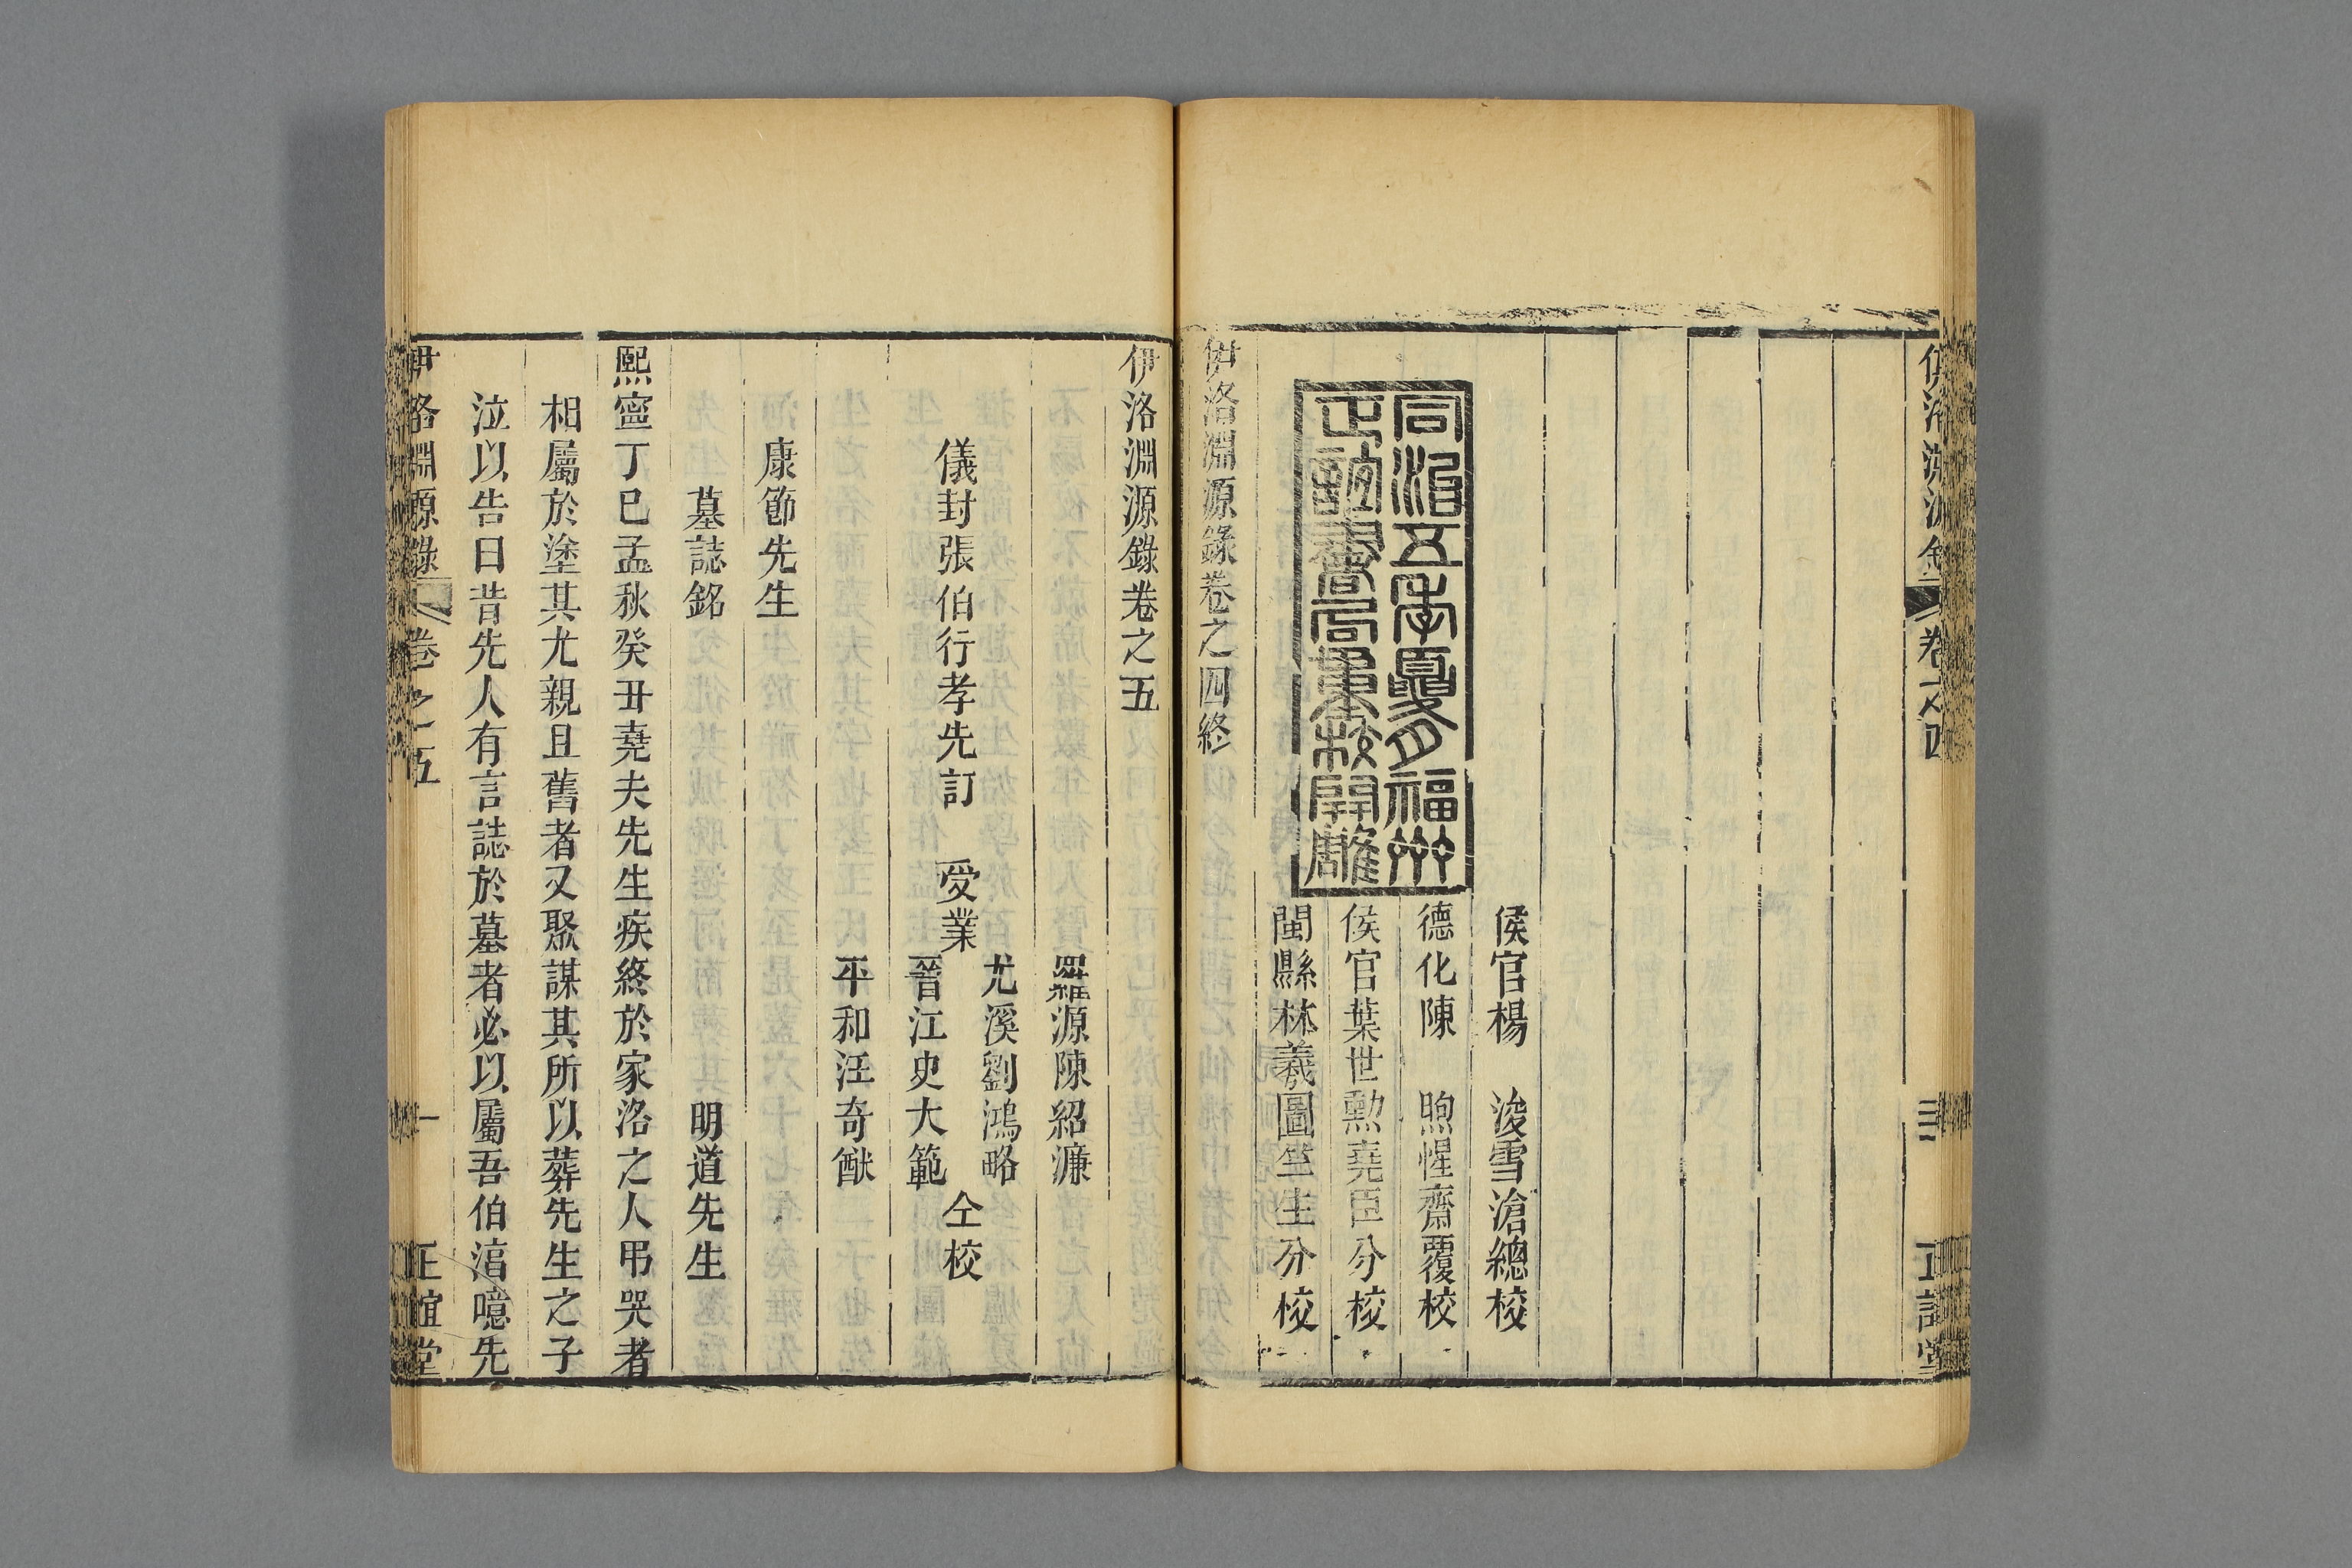 伊洛淵源錄 卷之四 三 正誼堂
同治五年夏月福州
正誼書局重校開雕
侯官楊 浚雪滄總校
德化陳 煦惺齋覆校
侯官葉世勲堯臣分校
閩縣林羲圖竺生分校
伊洛淵源錄卷之四終
伊洛淵源錄卷之五
羅源陳紹濂
尤溪劉鴻略
儀封張伯行孝先訂 受業 仝校
晉江史大範
平和汪奇猷
康節先生
墓誌銘 明道先生
熙寧丁巳孟秋癸丑堯夫先生疾終於家洛之人弔哭者
相屬於塗其尤親且舊者又聚謀其所以葬先生之子
泣以告曰昔先人有言誌於墓者必以屬吾伯淳噫先
伊洛淵源錄 卷之五 一 正誼堂